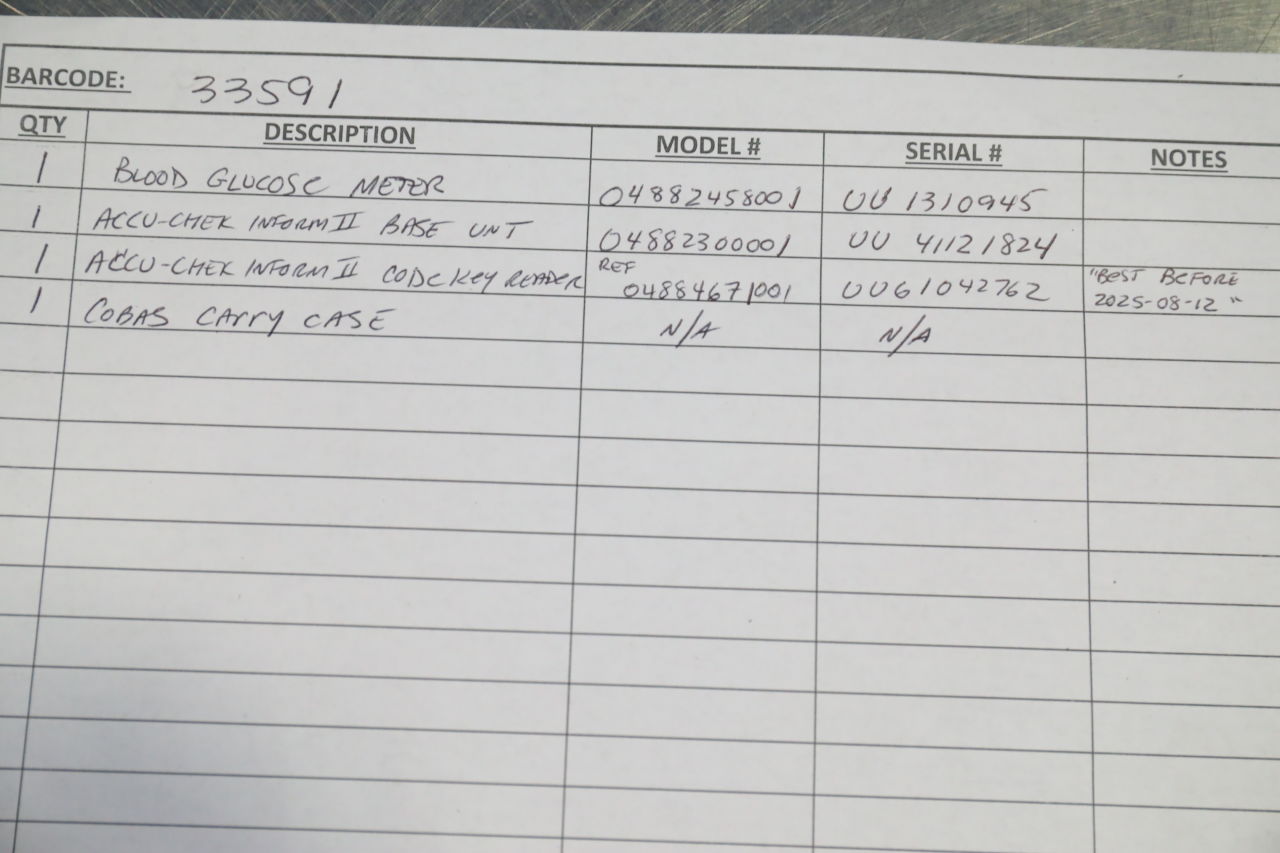 BARCODE: 33591
QTY DESCRIPTION MODEL # SERIAL # NOTES
1 BLOOD GLUCOSE METER 04882458001 UU 1310945
1 ACCU-CHEK INFORM II BASE UNT 04882300001 UU 41121824
1 ACCU-CHEK INFORM II CODE KEY READER REF 04884671001 UU61042762 "BEST BEFORE 2025-08-12"
1 COBAS CARRY CASE N/A N/A